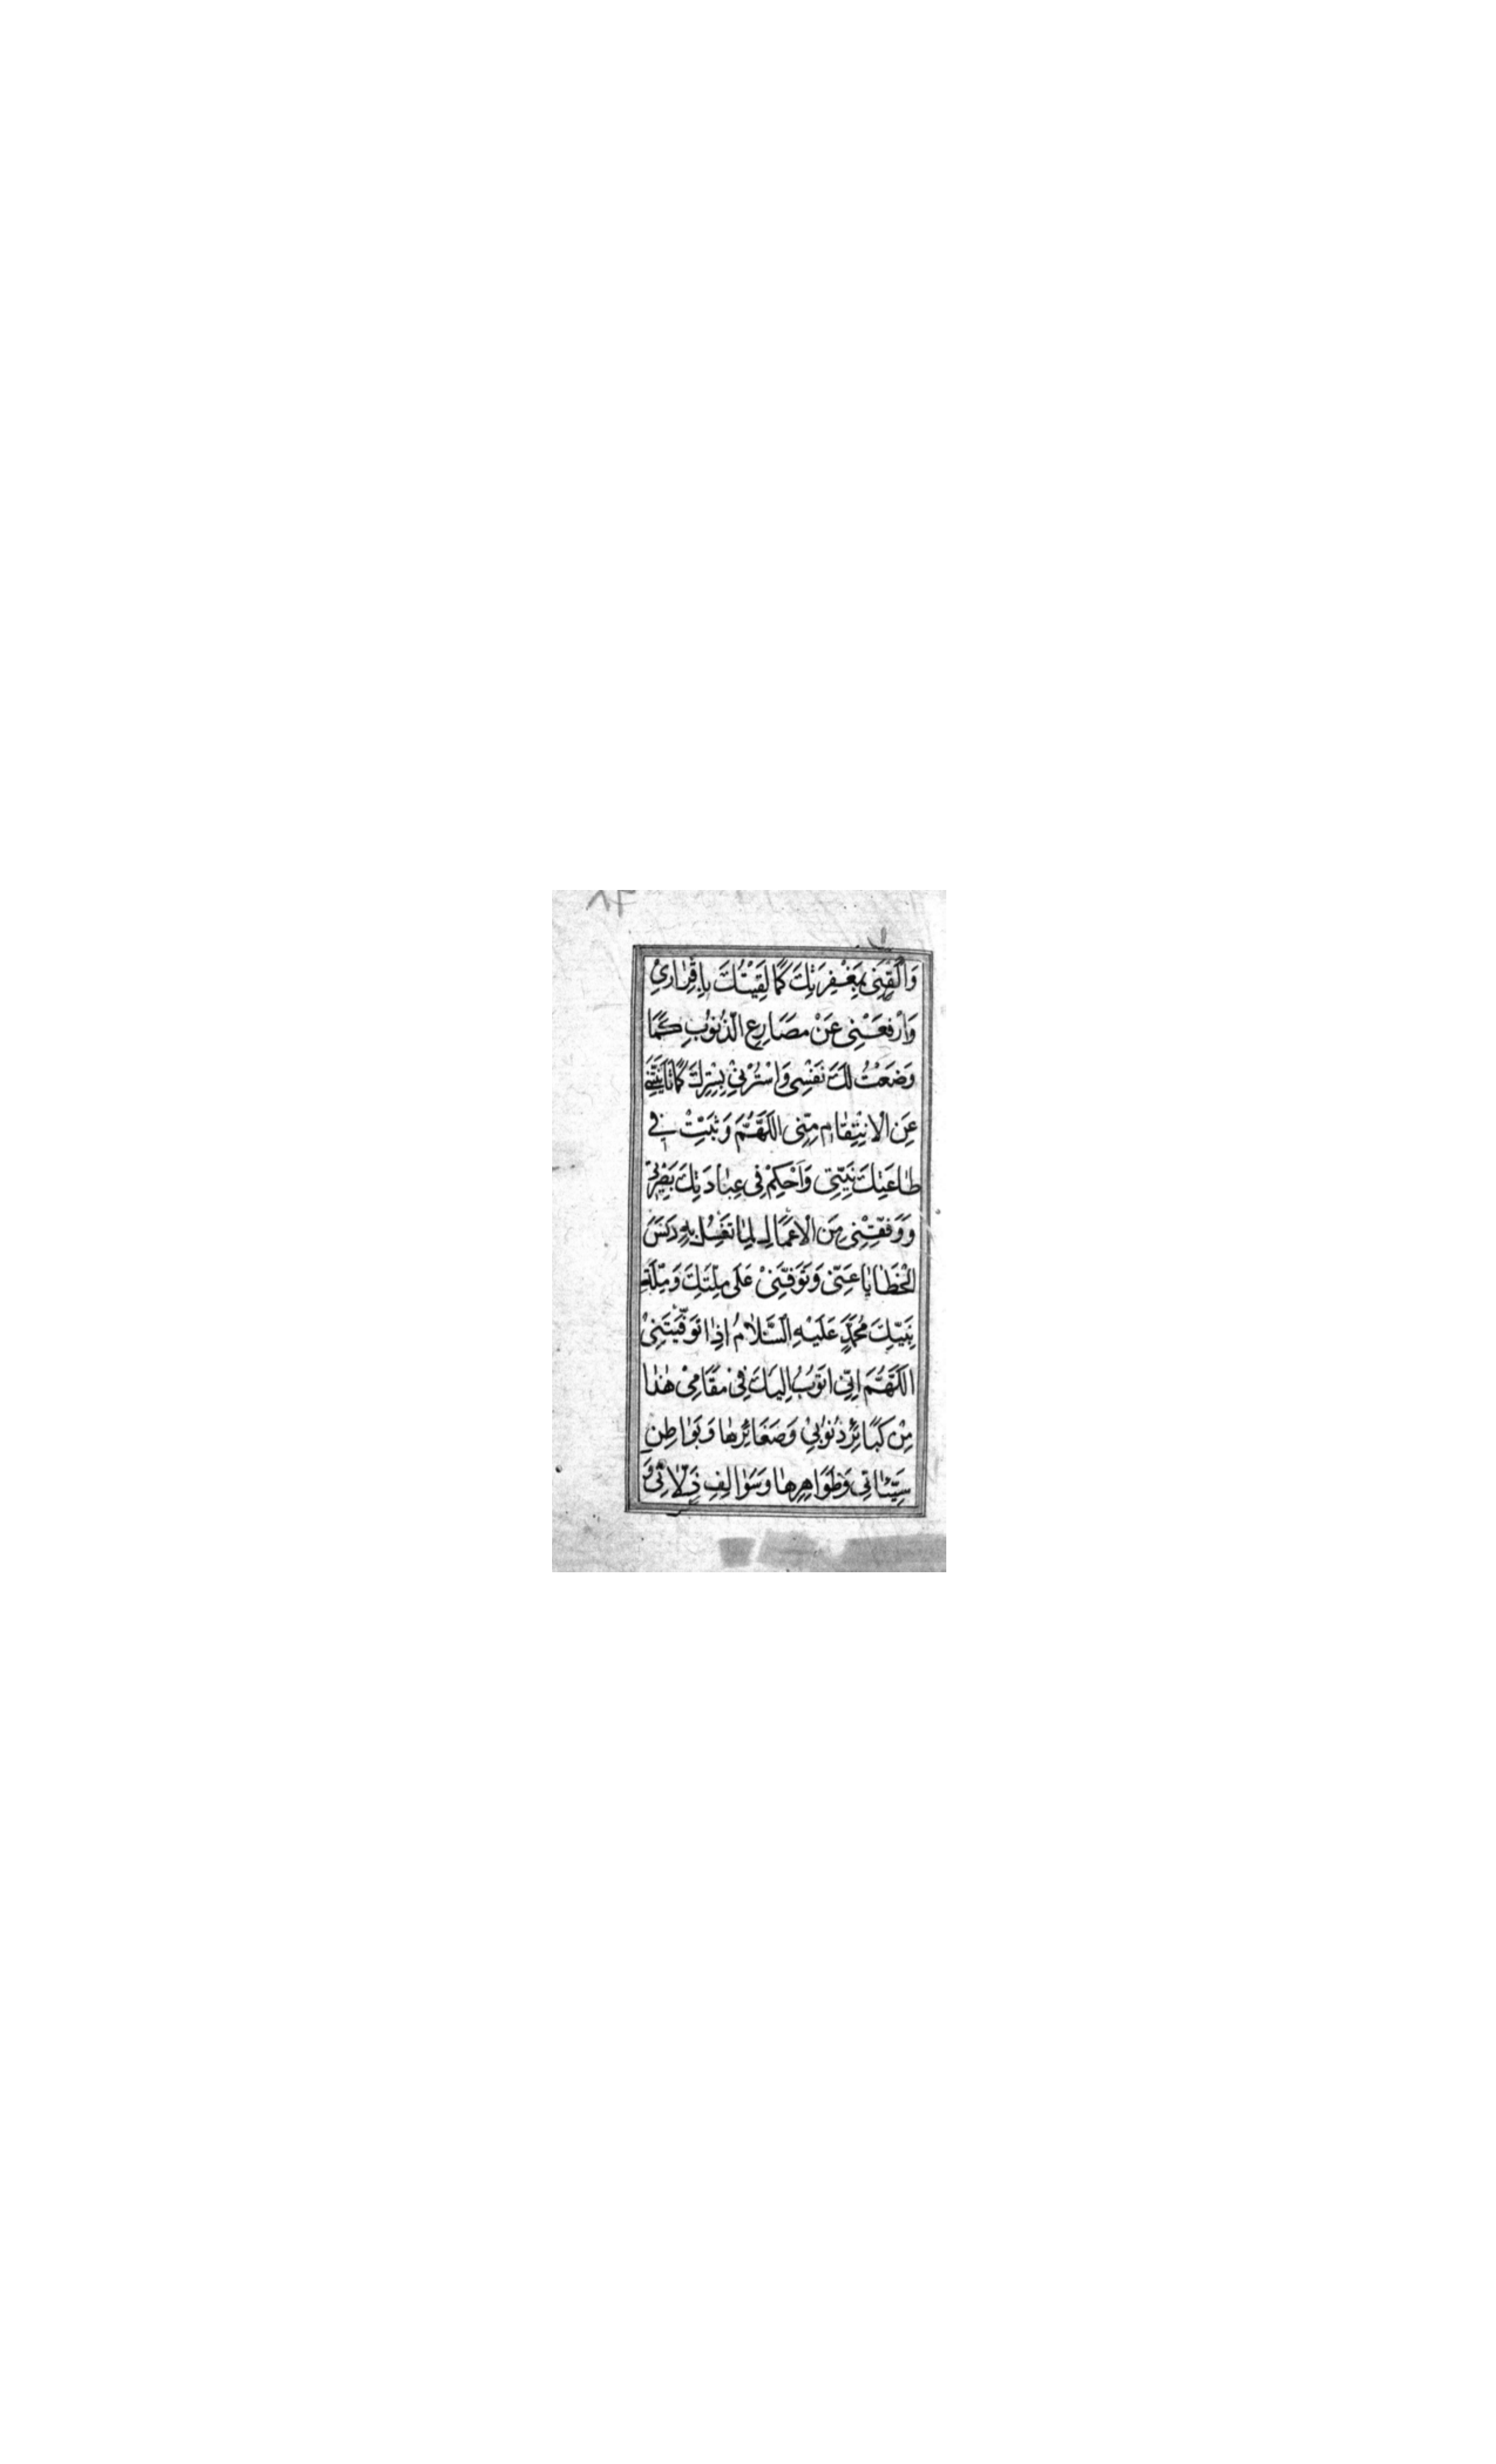 وَالْقَنِي بِمَغْفِرَتِكَ كَمَا لَقِيتُكَ بِإِقْرَارِي
وَارْفَعْنِي عَنْ مَصَارِعِ الذُّنُوبِ كَمَا
وَضَعْتُ لَكَ نَفْسِي وَاسْتُرْنِي بِسِتْرِكَ كَمَا تَأَنَّيْتَنِي
عَنِ الْاِنْتِقَامِ مِنِّي اللَّهُمَّ وَثَبِّتْ فِي
طَاعَتِكَ نِيَّتِي وَاَحْكِمْ فِي عِبَادَتِكَ بَصِيرَتِي
وَوَفِّقْنِي مِنَ الْاَعْمَالِ لِمَا تَغْسِلُ بِهِ دَنَسَ
الْخَطَايَا عَنِّي وَتَوَفَّنِي عَلَى مِلَّتِكَ وَمِلَّةِ
نَبِيِّكَ مُحَمَّدٍ عَلَيْهِ السَّلَامُ اِذَا تَوَفَّيْتَنِي
اللَّهُمَّ اِنِّي اَتُوبُ اِلَيْكَ فِي مَقَامِي هٰذَا
مِنْ كَبَائِرِ ذُنُوبِي وَصَغَائِرِهَا وَبَوَاطِنِ
سَيِّئَاتِي وَظَوَاهِرِهَا وَسَوَالِفِ زَلَّاتِي وَ